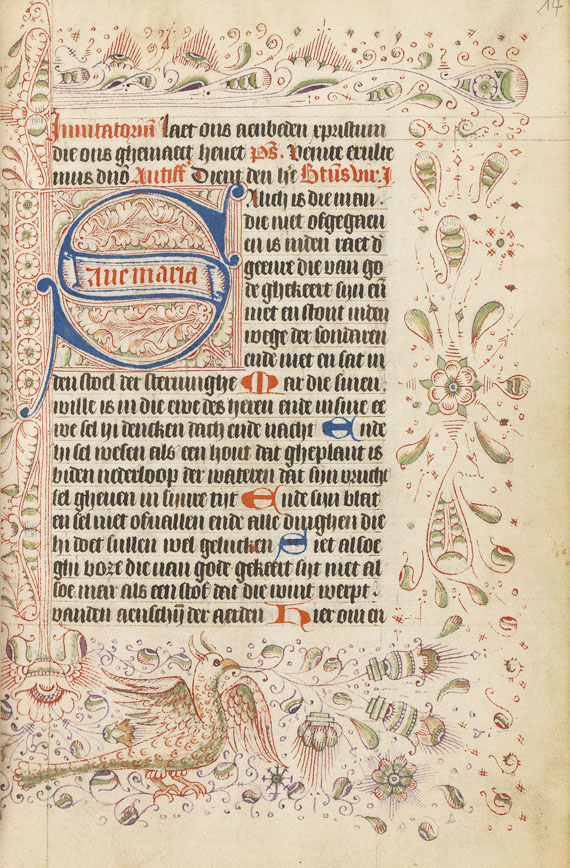 14
Inuitatoriū Laet ons aenbeden xpristum
die ons ghemaect heuet ps. Venite exulte
mus dn̄o Antiff Dient den h'e Btūs vir. I
Auch is die man.
die niet ofgegaen
en is inden raet d'
geenre die van go
de ghekeert sijn en̄
niet en stont inden
wege der sondaren
ende niet en sat in
aue maria
den stoel der steruinghe Mar die sinen.
wille is in die ewe des heren ende in sijnre ee
we sel hi dencken dach ende nacht Ende
hi sel wesen als een hout dat gheplant is
biden nederloop der wateren dat sijn vrucht
sel gheuen in sijnre tijt Ende sijn blat
en sel niet ofuallen ende alle dinghen die
hi doet sullen wel gelucken Niet alsoe
ghi boze die uan gode gekeert sijt niet al
soe mar als een stof dat die wint werpt.
vanden aenschijn der aerden Hier om en